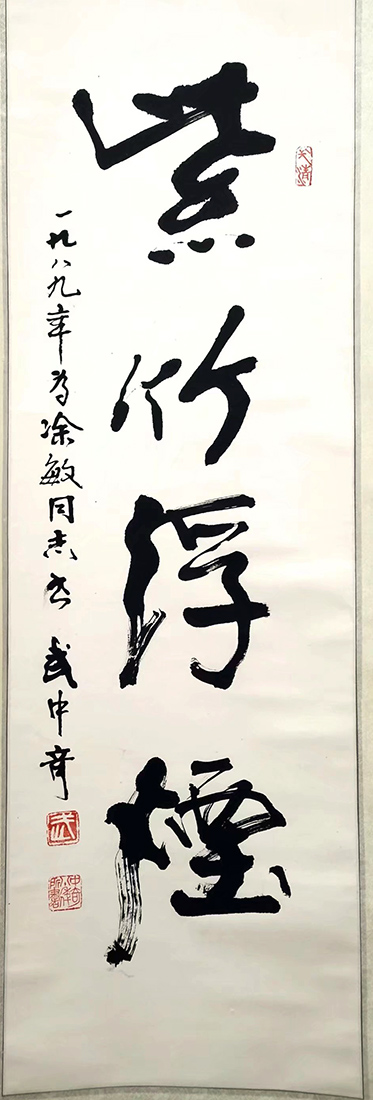 紫竹浮煙
一九八九年为涂敏同志书 武中奇